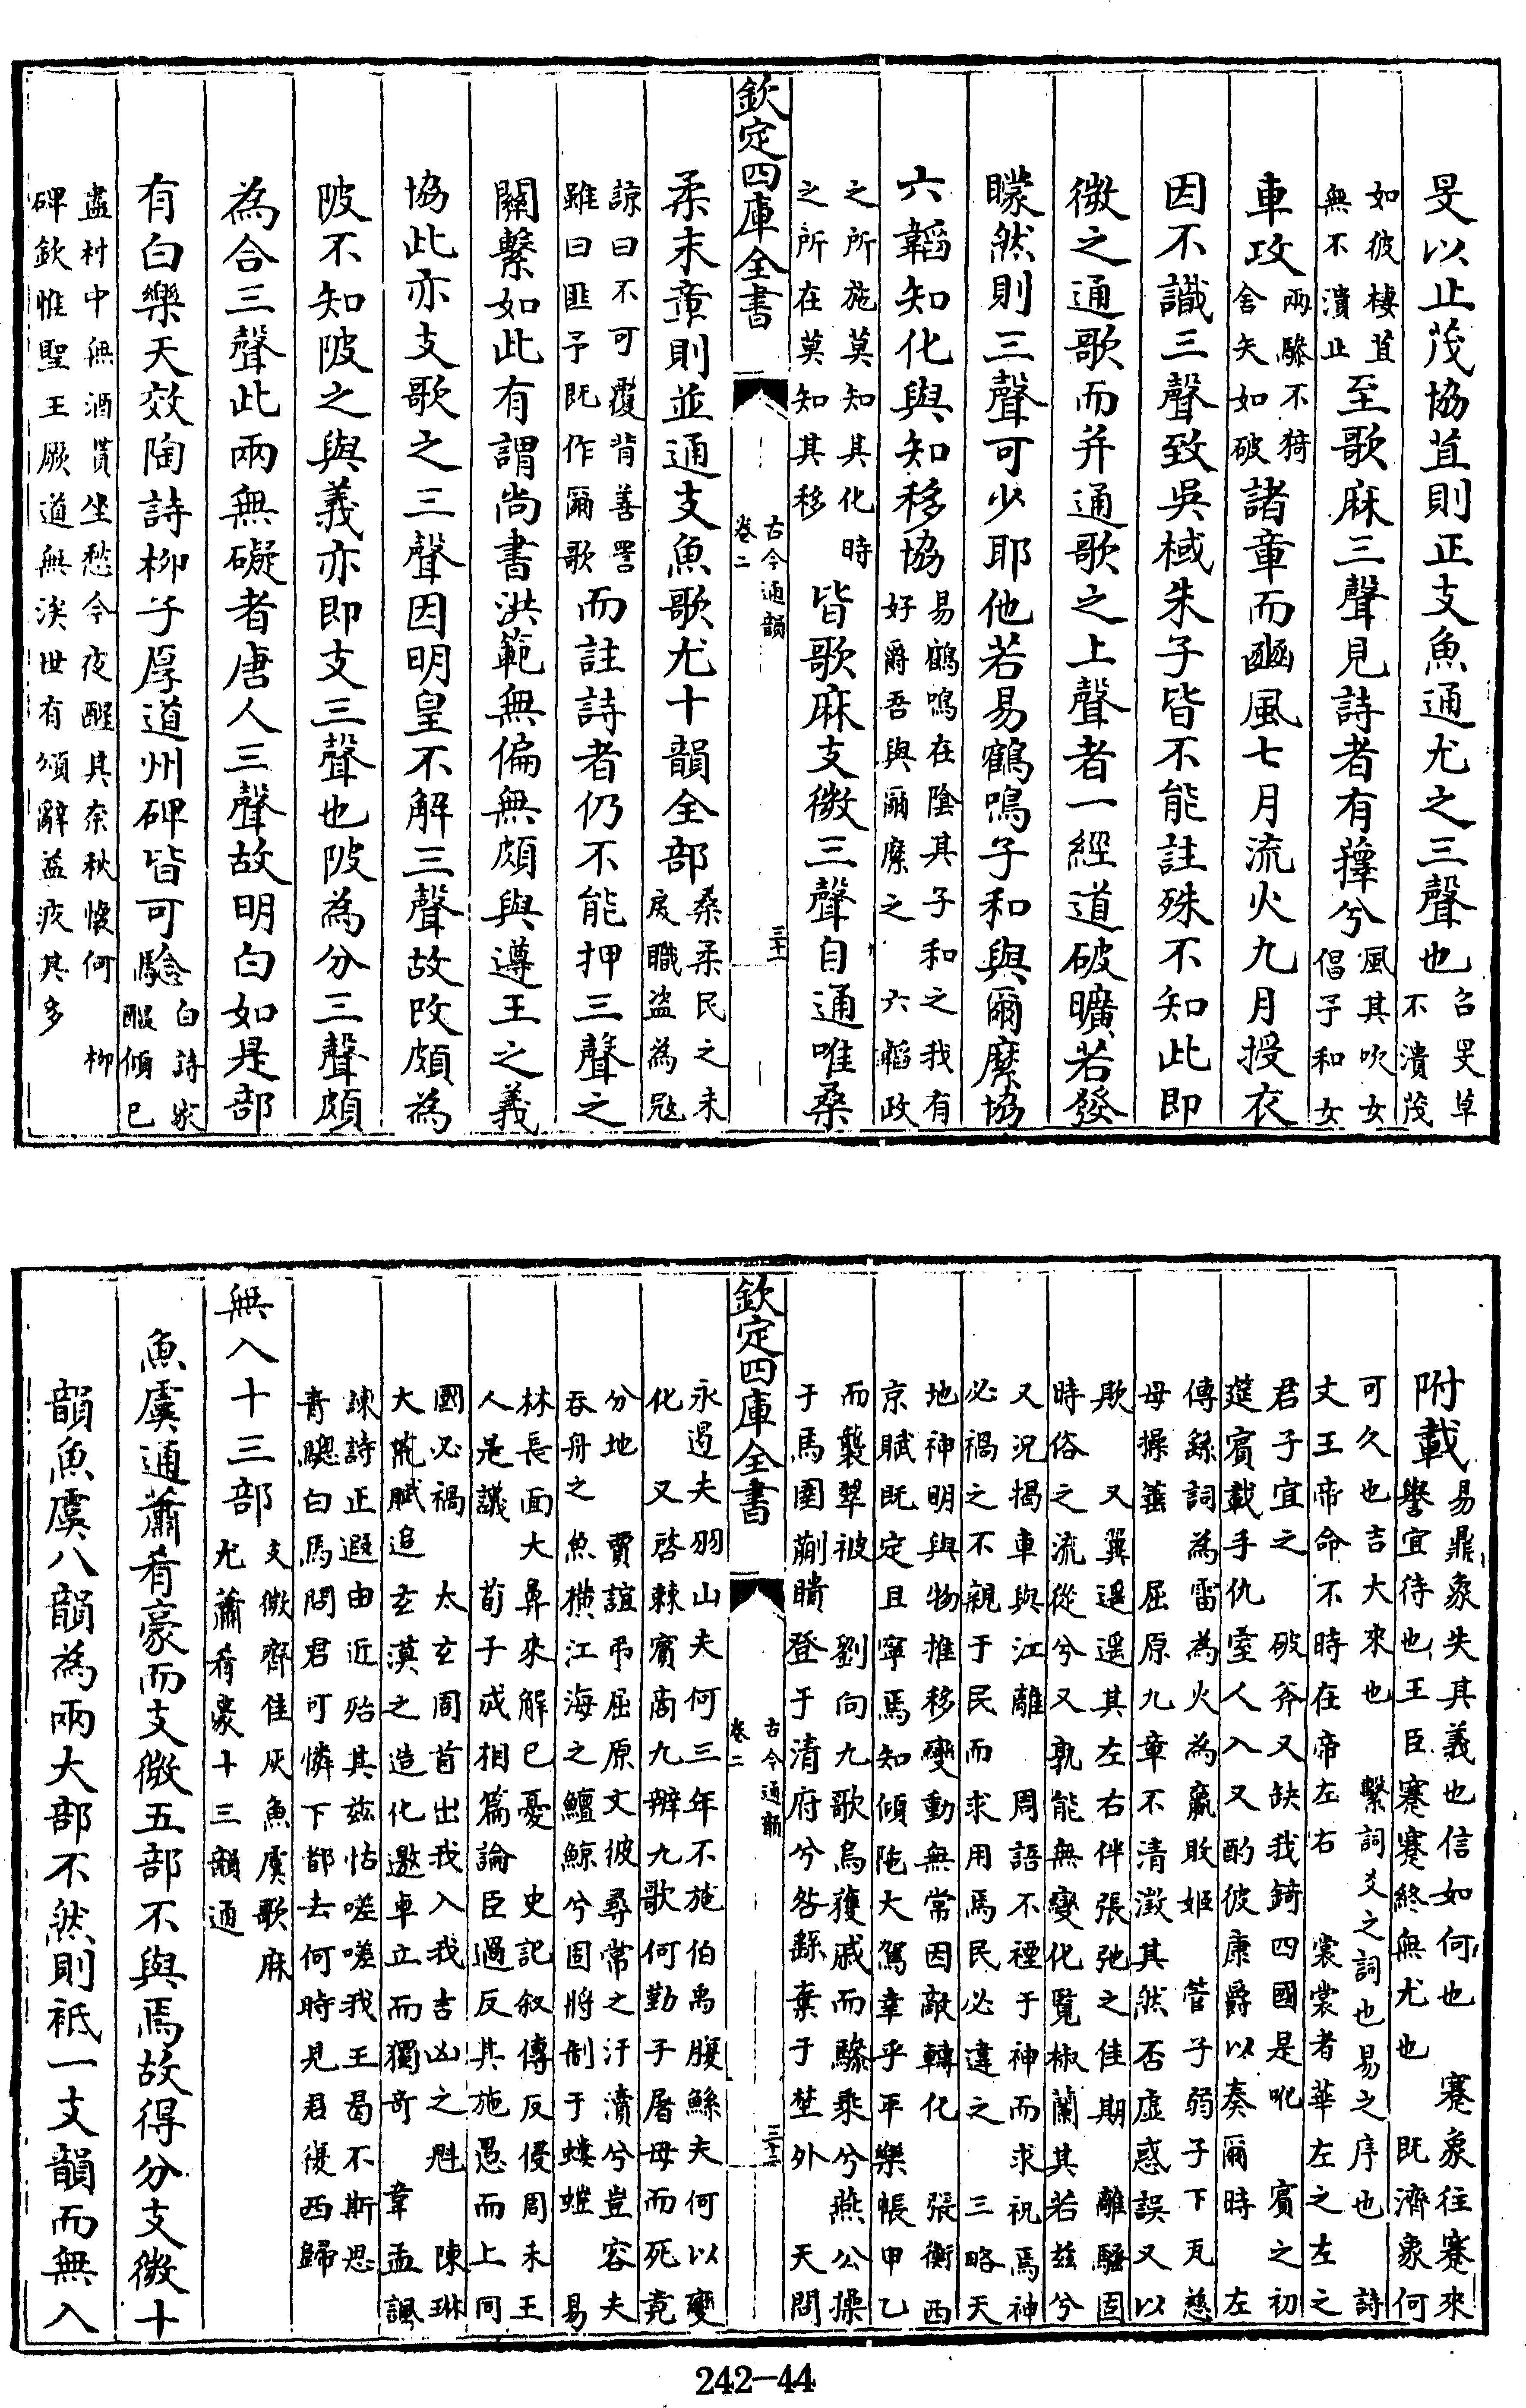 旻以止茂協苴則正支魚通尤之三聲也召旻草不潰茂
如彼棲苴無不潰止至歌麻三聲見詩者有蘀兮風其吹女倡予和女
車攻兩驂不猗舍矢如破諸章而豳風七月流火九月授衣
因不識三聲致吳棫朱子皆不能註殊不知此即
微之通歌而并通歌之上聲者一經道破曠若發
矇然則三聲可少耶他若易鶴鳴子和與爾縻協
六韜知化與知移協易鶴鳴在陰其子和之我有好爵吾與爾縻之 六韜政
之所施莫知其化時之所在莫知其移皆歌麻支微三聲自通唯桑
欽定四庫全書
古今通韻
卷二
三十一
柔末章則並通支魚歌尤十韻全部桑柔民之未戾職盗為冦
諒曰不可覆背善詈雖曰匪予既作爾歌而註詩者仍不能押三聲之
關繫如此有謂尚書洪範無偏無頗與遵王之義
協此亦支歌之三聲因明皇不解三聲故改頗為
陂不知陂之與義亦即支三聲也陂為分三聲頗
為合三聲此兩無礙者唐人三聲故明白如是部
有白樂天效陶詩柳子厚道州碑皆可驗白詩家醖傾已
盡村中無酒貰坐愁今夜醒其奈秋懷何 柳
碑欽惟聖王厥道無涘世有頌辭益疚其多
附載易鼎象失其義也信如何也 蹇象往蹇來
譽宜待也王臣蹇蹇終無尤也 既濟象何
可久也吉大來也 繫詞爻之詞也易之序也 詩
文王帝命不時在帝左右 裳裳者華左之左之
君子宜之 破斧又缺我錡四國是吪 賓之初
筵賓載手仇室人入又酌彼康爵以奏爾時 左
傳繇詞為雷為火為嬴敗姬 管子弱子下瓦慈
母操箠 屈原九章不清澂其然否虛惑誤又以
欺 又翼遥遥其左右伴張弛之佳期 離騷固
時俗之流從兮又孰能無變化覧椒蘭其若兹兮
又況揭車與江離 周語不禋于神而求祝焉神
必禍之不親于民而求用焉民必違之 三略天
地神明與物推移變動無常因敵轉化 張衡西
京賦既定且寧焉知傾陁大駕幸乎平樂帳甲乙
而襲翠被 劉向九歌烏獲戚而驂乘兮燕公操
于馬圉蒯聵登于清府兮咎繇棄于埜外 天問
欽定四庫全書
古今通韻
卷二
三十二
永遏夫羽山夫何三年不施伯禹腹鯀夫何以變
化 又啓棘賓商九辯九歌何勤子屠母而死竟
分地 賈誼弔屈原文彼尋常之汙瀆兮豈容夫
吞舟之魚横江海之鱣鯨兮固將制于螻螘 易
林長面大鼻來解已憂 史記叙傳反侵周末王
人是議 荀子成相篇論臣過反其施愚而上同
國必禍 太玄周首出我入我吉凶之魁 陳琳
大荒賦追玄漠之造化邀卓立而獨竒 韋孟諷
諫詩正遐由近殆其兹怙嗟嗟我王曷不斯思
青驄白馬問君可憐下都去何時見君復西歸
無入十三部支微齊佳灰魚虞歌麻尤蕭肴豪十三韻通
魚虞通蕭肴豪而支微五部不與焉故得分支微十
韻魚虞八韻為兩大部不然則祗一支韻而無入
242-44